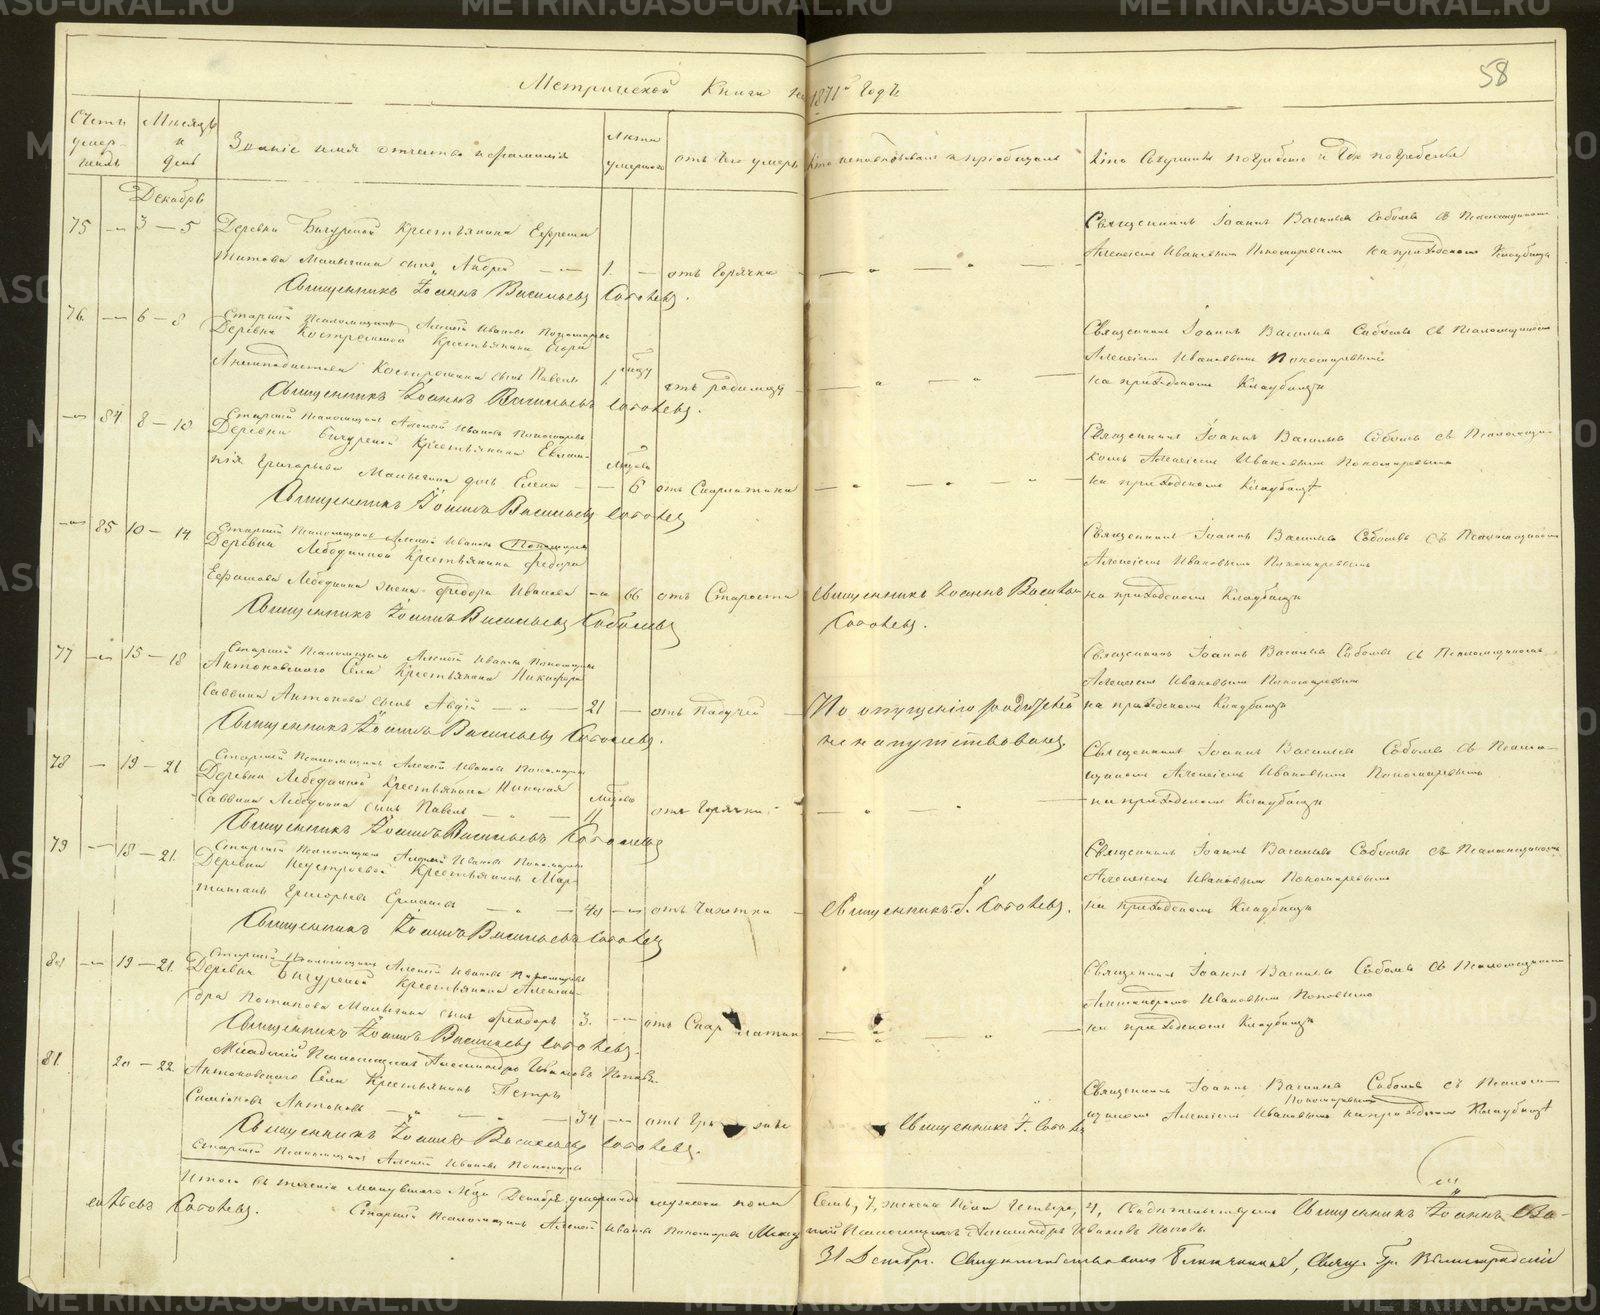 58
Метрической Книги на 1871й Годъ
Счетъ умершихъ
Мѣсяцъ и день
Званіе имя отчество и фамилія
Лѣта умершаго
отъ чего умеръ
Кто исповѣдывалъ и пріобщалъ
Кто совершилъ погребеніе и гдѣ погребены
Декабрь
75 — 3 — 5 Деревни Бичуриной Крестьянина Ефрема
Титова Малыгина сынъ Андрей 1 — отъ Горячки
Священникъ Іоаннъ Васильевъ Соболевъ.
Старшій Псаломщикъ Алексѣй Ивановъ Пономаревъ
Священникъ Іоаннъ Васильевъ Соболевъ съ Псаломщикомъ
Алексѣемъ Ивановымъ Пономаревымъ на приходскомъ Кладбищѣ
76 — 6 — 8 Деревни Костромской Крестьянина Егора
Костромина сынъ Павелъ отъ родимца
Священникъ Іоаннъ Васильевъ Соболевъ.
Старшій Псаломщикъ Алексѣй Ивановъ Пономаревъ
Священникъ Іоаннъ Васильевъ Соболевъ съ Псаломщикомъ
Алексѣемъ Ивановымъ Пономаревымъ
на приходскомъ Кладбищѣ
— 84 8 — 10 Деревни Бичуриной Крестьянина Евлам-
пія Григорьева Малыгина дочь Елена — 6 отъ Скарлатины
Священникъ Іоаннъ Васильевъ Соболевъ
Старшій Псаломщикъ Алексѣй Ивановъ Пономаревъ
Священникъ Іоаннъ Васильевъ Соболевъ съ Псаломщи-
комъ Алексѣемъ Ивановымъ Пономаревымъ
на приходскомъ Кладбищѣ
— 85 10 — 14 Деревни Лебедкиной Крестьянина Федора
Лебедкина жена Федора Иванова — 66 отъ Старости
Священникъ Іоаннъ Васильевъ Соболевъ
Старшій Псаломщикъ Алексѣй Ивановъ Пономаревъ
Священникъ Іоаннъ Васильевъ
Соболевъ.
Священникъ Іоаннъ Васильевъ Соболевъ съ Псаломщикомъ
Алексѣемъ Ивановымъ Пономаревымъ
на приходскомъ Кладбищѣ
77 — 15 — 18 Антоновского Села Крестьянина Никифора
Саввина Антонова сынъ Авдій 21 — отъ Падучей
Священникъ Іоаннъ Васильевъ Соболевъ.
Старшій Псаломщикъ Алексѣй Ивановъ Пономаревъ
По опущенію родителей
не напутствованъ.
Священникъ Іоаннъ Васильевъ Соболевъ съ Псаломщикомъ
Алексѣемъ Ивановымъ Пономаревымъ
на приходскомъ Кладбищѣ
78 — 19 — 21 Деревни Лебедкиной Крестьянина Николая
Саввина Лебедкина сынъ Павелъ 11 отъ Горячки
Священникъ Іоаннъ Васильевъ Соболевъ
Старшій Псаломщикъ Алексѣй Ивановъ Пономаревъ
Священникъ Іоаннъ Васильевъ Соболевъ съ Псалом-
щикомъ Алексѣемъ Ивановымъ Пономаревымъ
на приходскомъ Кладбищѣ
79 — 18 — 21 Деревни Неустроевой Крестьянинъ Мар-
Григорьевъ Ермаковъ 40 — отъ Чахотки
Священникъ Іоаннъ Васильевъ Соболевъ
Священникъ І. Соболевъ.
Священникъ Іоаннъ Васильевъ Соболевъ съ Псаломщикомъ
Алексѣемъ Ивановымъ Пономаревымъ
на приходскомъ Кладбищѣ
80 — 19 — 21 Старшій Псаломщикъ Алексѣй Ивановъ Пономаревъ
Деревни Бичуриной Крестьянина Алексан-
дра Потапова Малыгина сынъ Федоръ 3. — отъ Скарлатины
Священникъ Іоаннъ Васильевъ Соболевъ.
Младшій Псаломщикъ Александръ Ивановъ Поповъ
Священникъ Іоаннъ Васильевъ Соболевъ съ Псаломщикомъ
Александромъ Ивановымъ Поповымъ
на приходскомъ Кладбищѣ
81 20 — 22 Антоновского Села Крестьянинъ Петръ
Антоновъ 34 — отъ
Священникъ Іоаннъ Васильевъ Соболевъ.
Старшій Псаломщикъ Алексѣй Ивановъ Пономаревъ
Священникъ І. Соболевъ
Священникъ Іоаннъ Васильевъ Соболевъ съ Псалом-
щикомъ Алексѣемъ Ивановымъ Пономаревымъ на приходскомъ Кладбищѣ
Итого въ теченіи минувшаго Мѣсяца Декабря умершихъ мужска пола Семь, 7, женска пола Четыре, 4, Свидѣтельствуемъ Священникъ Іоаннъ Ва-
сильевъ Соболевъ. Старшій Псаломщикъ Алексѣй Ивановъ Пономаревъ Младшій Псаломщикъ Александръ Ивановъ Поповъ
31 Декабр. Свидѣтельствовалъ Благочинный, Свящ. Гр.
METRIKI.GASO-URAL.RU